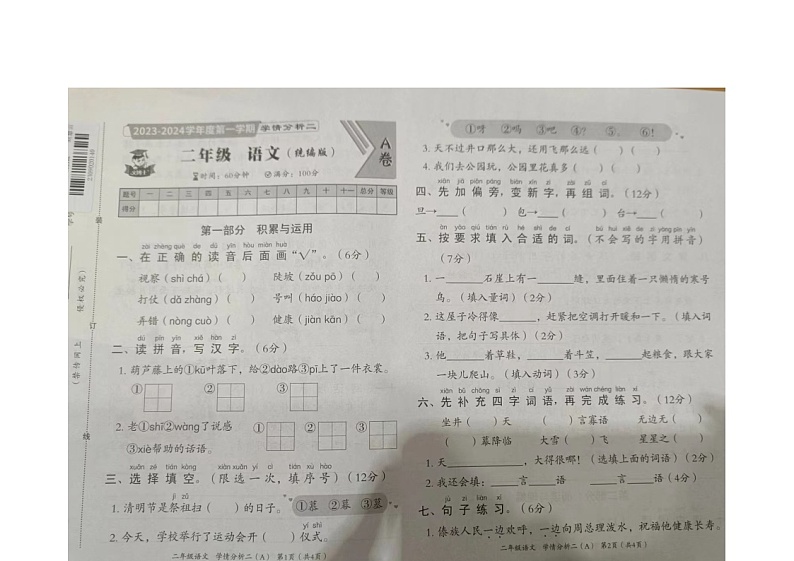 2023-2024学年度第一学期 学情分析二
二年级 语文（统编版）
A卷
时间：60分钟 满分：100分
题号 一 二 三 四 五 六 七 八 九 十 十一 总分 等级
得分
第一部分 积累与运用
zài zhèng què de dú yīn hòu miàn huà
一、在正确的读音后面画“√”。（6分）
视察（shì chá）（ ） 陡坡（zǒu pō）（ ）
打仗（dǎ zhàng）（ ） 号叫（háo jiào）（ ）
弄错（nòng cuò）（ ） 健康（jiàn kān）（ ）
dú pīn yīn xiě hàn zì
二、读拼音，写汉字。（6分）
1. 葫芦藤上的①kū叶落下，给②dào路③pī上了一件衣裳。
① ② ③
2. 老①shī②wàng了说感 ① ② ③
③xiè帮助的话语。
xuǎn zé tián kòng xiàn xuǎn yí cì tián xù hào
三、选择填空。（限选一次，填序号）（12分）
jì zǔ
1. 清明节是祭祖扫（ ）的日子。 ①慕 ②幕 ③墓
yí shì
2. 今天，学校举行了运动会开（ ）仪式。
二年级语文 学情分析二（A） 第1页（共4页）
①呀 ②吗 ③吧 ④？ ⑤。 ⑥！
3. 天不过井口那么大，还用飞那么远（ ）（ ）
4. 我们去公园玩，公园里花真多（ ）（ ）
xiān jiā piān páng biàn xīn zì zài zǔ cí
四、先加偏旁，变新字，再组词。（12分）
旦→____（ ） 包→____（ ） 台→____（ ）
àn yāo qiú tián rù hé shì de cí bú huì xiě de zì yòng pīn yīn
五、按要求填入合适的词。（不会写的字用拼音）
（7分）
1. 一____石崖上有一____缝，里面住着一只懒惰的寒号
鸟。（填入量词）（2分）
2. 这屋子冷得像____，赶紧把空调打开暖和一下。（填入词
语，把句子写具体）（2分）
3. 他____着草鞋，____着斗笠，____起粮食，跟大家
一块儿爬山。（填入动词）（3分）
xiān bǔ chōng sì zì cí yǔ zài wán chéng liàn xí
六、先补充四字词语，再完成练习。（12分）
坐井（ ）天 （ ）言寡语 无边无（ ）
（ ）幕降临 大雪（ ）飞 星星之（ ）
1. 天____，大得很哪！（选填上面的词语）（2分）
2. 我还会填：____言____语 ____言____语（4分）
jù zi liàn xí
七、句子练习。（6分）
1. 傣族人民一边欢呼，一边向周总理泼水，祝福他健康长寿。
二年级语文 学情分析二（A） 第2页（共4页）
装
订
线